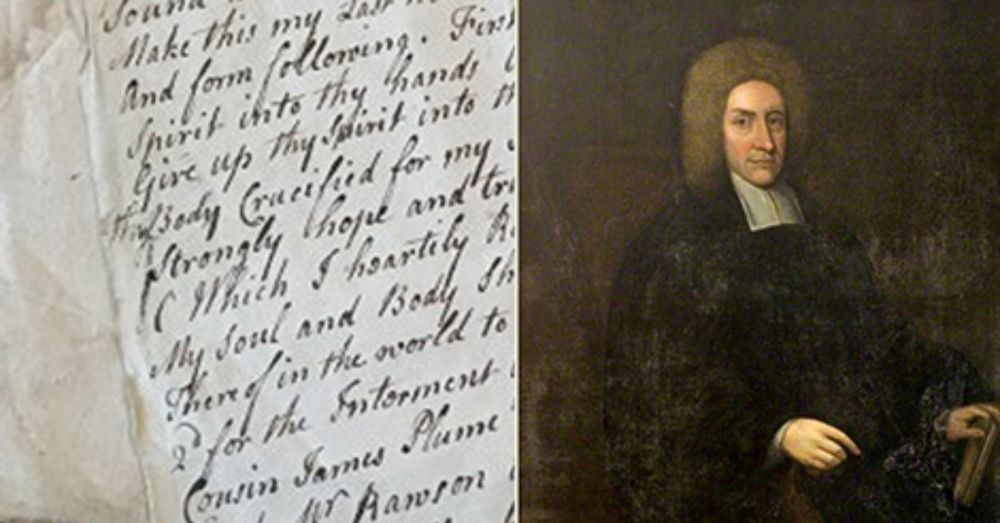 Sound
Make this my Last
And form following. First
Spirit into thy hands
Give up thy Spirit into
thy Body Crucified for my
Strongly hope and
( Which I heartily
My Soul and Body
Thereof in the world to
2 for the Interment
Cousin James Plume
Mr Rawson